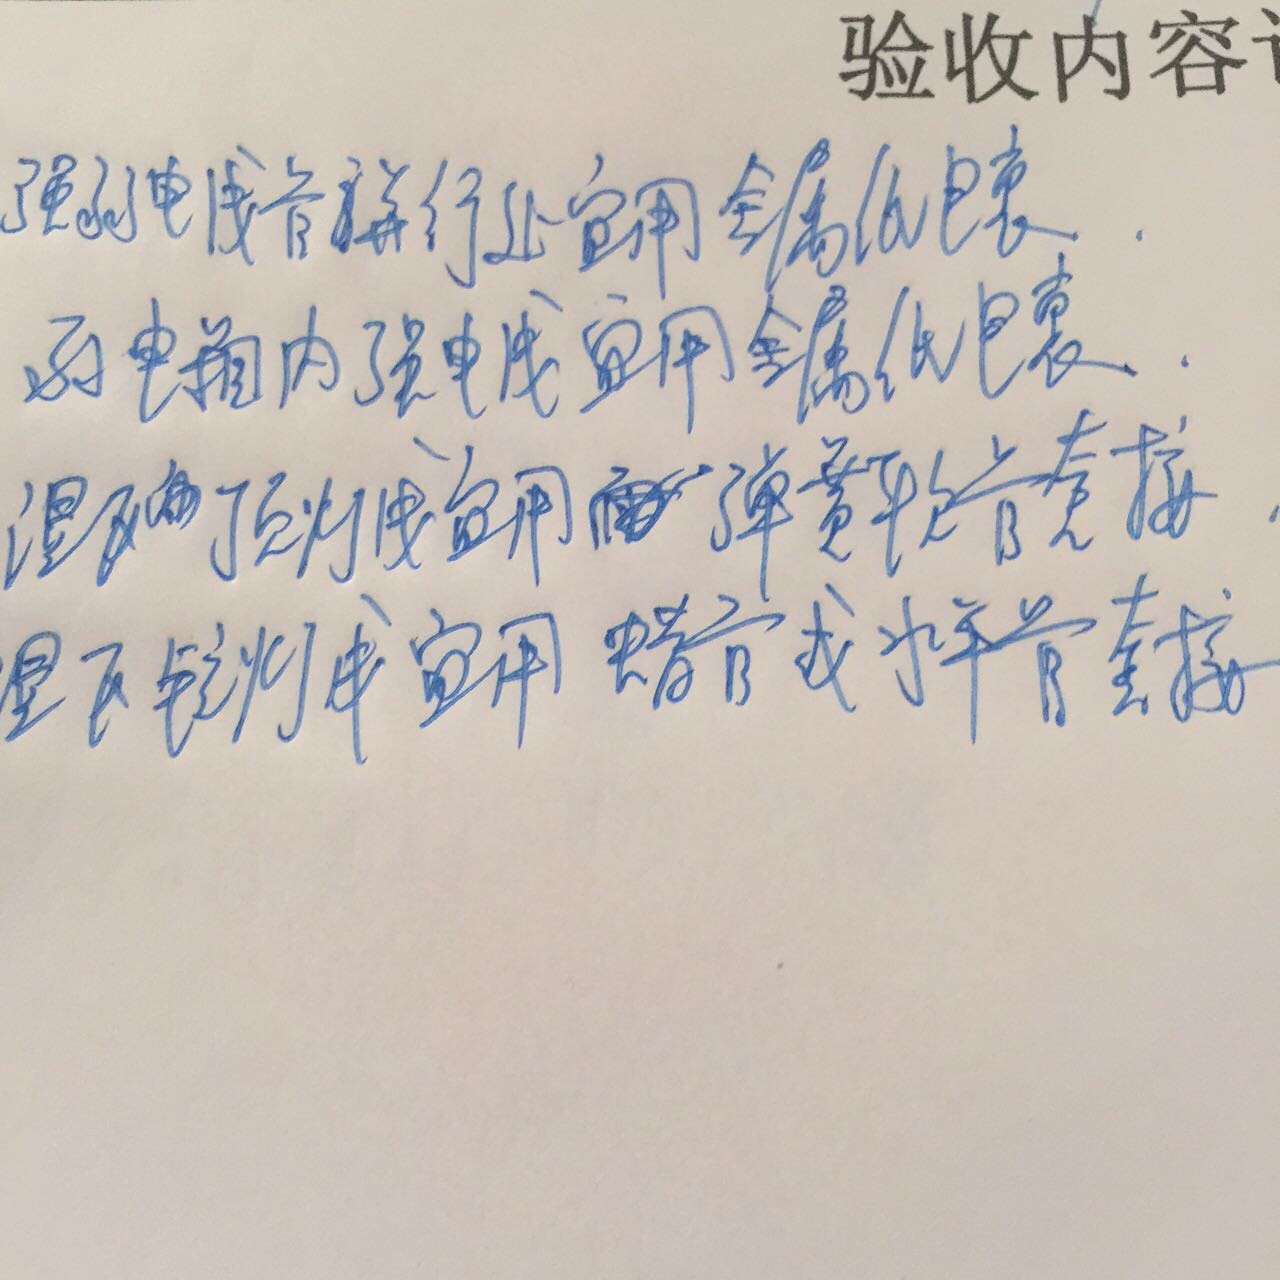 验收内容
强弱电线管并行处宜用金属纸包裹.
弱电箱内强电线宜用金属纸包裹.
湿区顶灯线宜用弹黄软管套接.
湿区镜灯线宜用蜡管或水平管套接